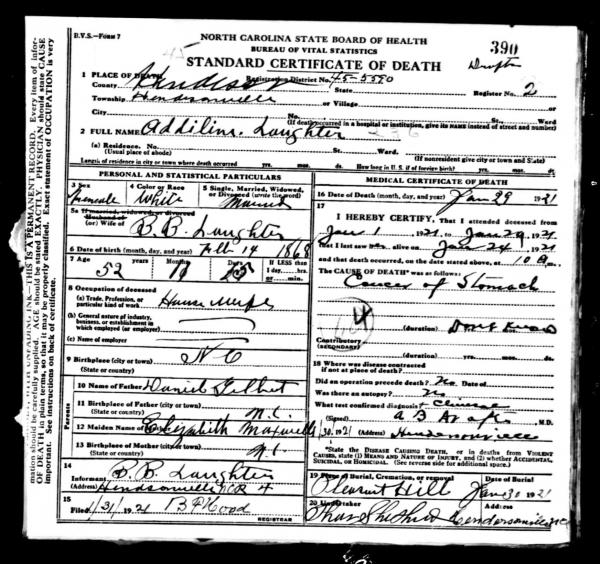 B.V.S.-Form 7
NORTH CAROLINA STATE BOARD OF HEALTH
BUREAU OF VITAL STATISTICS
STANDARD CERTIFICATE OF DEATH
390
45
1 PLACE OF DEATH
County Henderson
Registration District No. 45-5550
State
Register No. 2
Township Hendersonville
or Village
City
No.
St.
Ward
(If death occurred in a hospital or institution, give its NAME instead of street and number)
2 FULL NAME Addiline Laughter
(a) Residence. No.
(Usual place of abode)
St. Ward.
(If nonresident give city or town and State)
Length of residence in city or town where death occurred yrs. mos. ds.
How long in U. S. if of foreign birth? yrs. mos. ds.
PERSONAL AND STATISTICAL PARTICULARS
3 Sex
Female
4 Color or Race
White
5 Single, Married, Widowed,
or Divorced (write the word)
Married
5a If married, widowed, or divorced
Husband of
(or) Wife of B. B. Laughter
6 Date of birth (month, day, and year) Feb 14 1868
7 Age Years Months Days
52 11 15
If LESS than
1 day, hrs.
or min.
8 Occupation of deceased
(a) Trade, Profession, or
particular kind of work House Wife
(b) General nature of industry,
business, or establishment in
which employed (or employer)
(c) Name of employer
9 Birthplace (city or town) N C
(State or country)
Parents
10 Name of Father Daniel Gilbert
11 Birthplace of Father (city or town)
(State or country) N. C.
12 Maiden Name Elizabeth Maxwell
13 Birthplace of Mother (city or town)
(State or country) N. C.
14
Informant B B Laughter
(Address) Hendersonville NCR 4
15
Filed 1/31/1921 B F Hood
REGISTRAR
MEDICAL CERTIFICATE OF DEATH
16 Date of Death (month, day, and year) Jan 29 1921
17
I HEREBY CERTIFY, That I attended deceased from
Jan 1 1921, to Jan 29, 1921
that I last saw alive on Jan 24, 1921
and that death occurred, on the date stated above, at 10 a m.
The CAUSE OF DEATH* was as follows:
Cancer of Stomach
4
(duration) Dont Know
Contributory
(SECONDARY)
(duration) yrs. mos. ds.
18 Where was disease contracted
if not at place of death?
Did an operation precede death? No Date of
Was there an autopsy? No
What test confirmed diagnosis? Clinical
(Signed) M.D.
1/30, 1921 (Address) Hendersonville
*State the DISEASE CAUSING DEATH, or in deaths from VIOLENT
CAUSES, state (1) MEANS AND NATURE OF INJURY, and (2) whether ACCIDENTAL,
SUICIDAL, or HOMICIDAL. (See reverse side for additional space.)
19 Place of Burial, Cremation, or removal
Pleasant Hill
Date of Burial
Jan 30 1921
20 Undertaker
Thos Shepherd
Address
Hendersonville NC